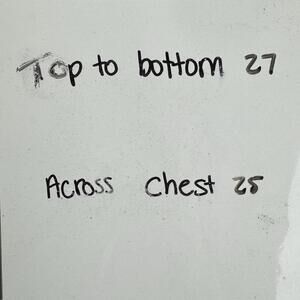 Top to bottom 27
Across Chest 25